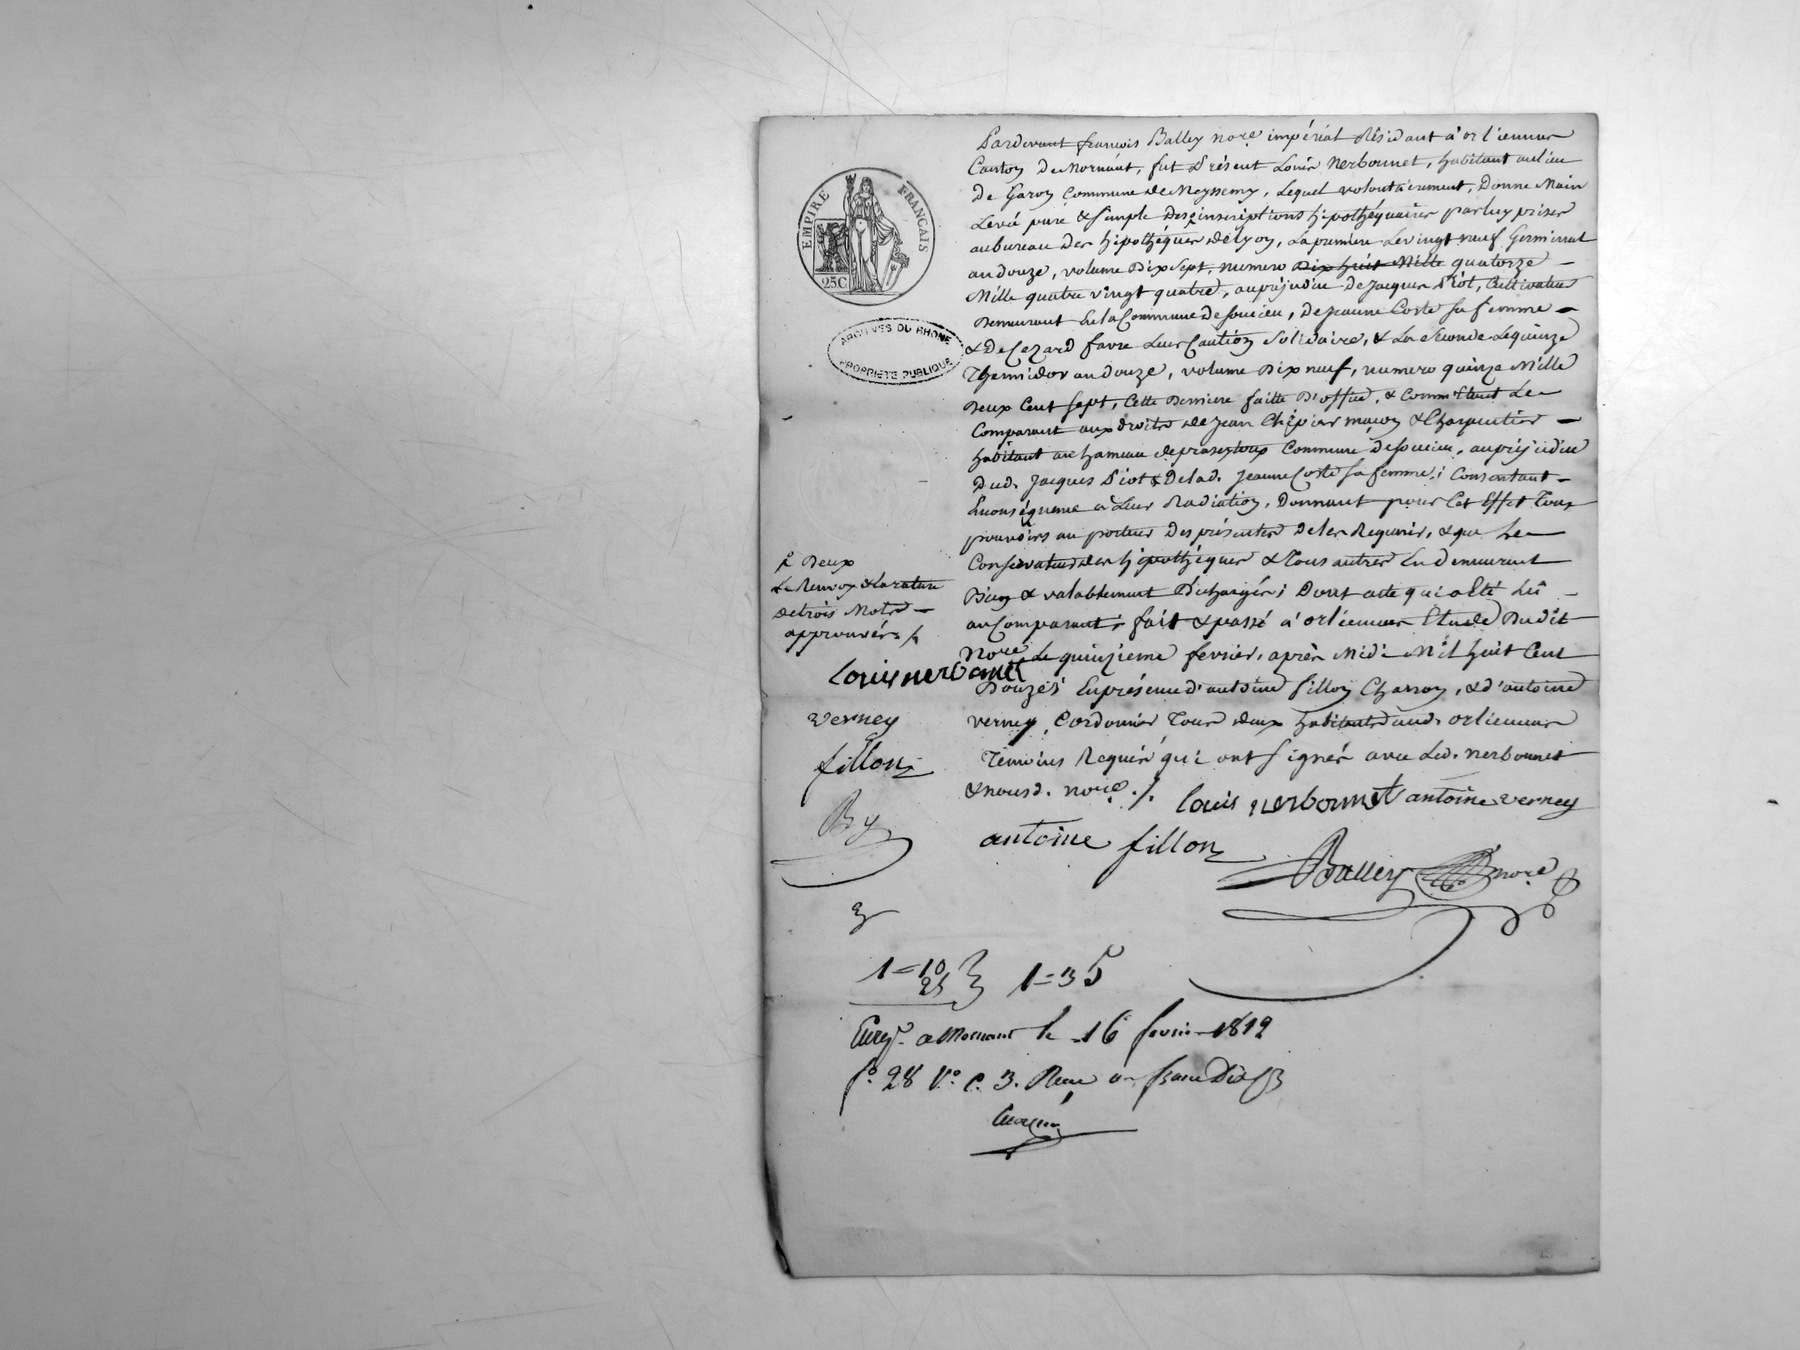 EMPIRE FRANÇAIS
25C
ARCHIVES DU RHONE
PROPRIÉTÉ PUBLIQUE
Pardevant françois Balley no.re impérial Résidant a' orliennas
Canton de Mornant, fut Présent Louis Nerbonnet, habitant au lieu
de Garon Commune de Meyssemy, Lequel volontairement, Donne Main
Levée pure & simple Des inscriptions hipothéquaires par luy prises
au bureau des hipothéques de Lyon, La premiere Le vingt neuf Germinal
an douze, volume Dix Sept, numero Dix huit Mille quatorze –
Mille quatre vingt quatre, au préjudice De Jacques Piot, Cultivateur
Demeurant En la Commune de Soucieu, De Jeanne Coste sa femme –
& De Cezard favre Leur Caution Solidaire, & La Seconde Le quinze
Thermidor an douze, volume Dix neuf, numero quinze Mille
Deux Cent Sept, Cette Derniere faitte D'office, & Comm' Etant Le
Comparant aux droits de Jean Chipier maçon & Charpentier –
habitant au hameau de Commune de Soucieu, au préjudice
Dud. Jacques Piot & De lad. Jeanne Coste sa femme; Consentant –
En conséquence a Leur Radiation, Donnant pour Cet Effet Tous
pouvoirs au porteur Des présentes De les Requerir, & que Le
Conservateur des hipothéques & Tous autres En Demeurent
Bien & valablement Déchargés; Dont acte qui a Eté Lû –
au Comparant; fait & passé a' orliennas Etude Dudit
No.re Le quinzieme fevrier, après Midi Mil huit Cent
Douze; En présence d'antoine fillon Charron, & d'antoine
verney, Cordonnier Tous deux habitants aud. orliennas
Temoins Requis qui ont signés avec Led. Nerbonnet
& nousd. no.re ./.
Deux
Le Renvoy & La rature
de trois Mots –
approuvés
Louis nerbonnet
verney
fillon
By
louis nerbonnet antoine verney
antoine fillon
Balley no.re
1 = 10
25
1 = 35
Enreg.é a Mornant le 16 fevrier 1812
f.o 28 V.o c. 3. Reçu un franc Dix